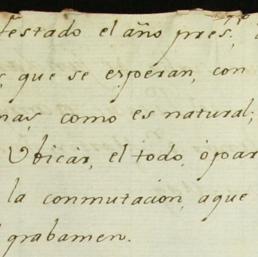 festado el año pres.
que se esperan, con
mas como es natural;
Ubicar, el todo, ò par
la conmutacion, aque
grabamen.